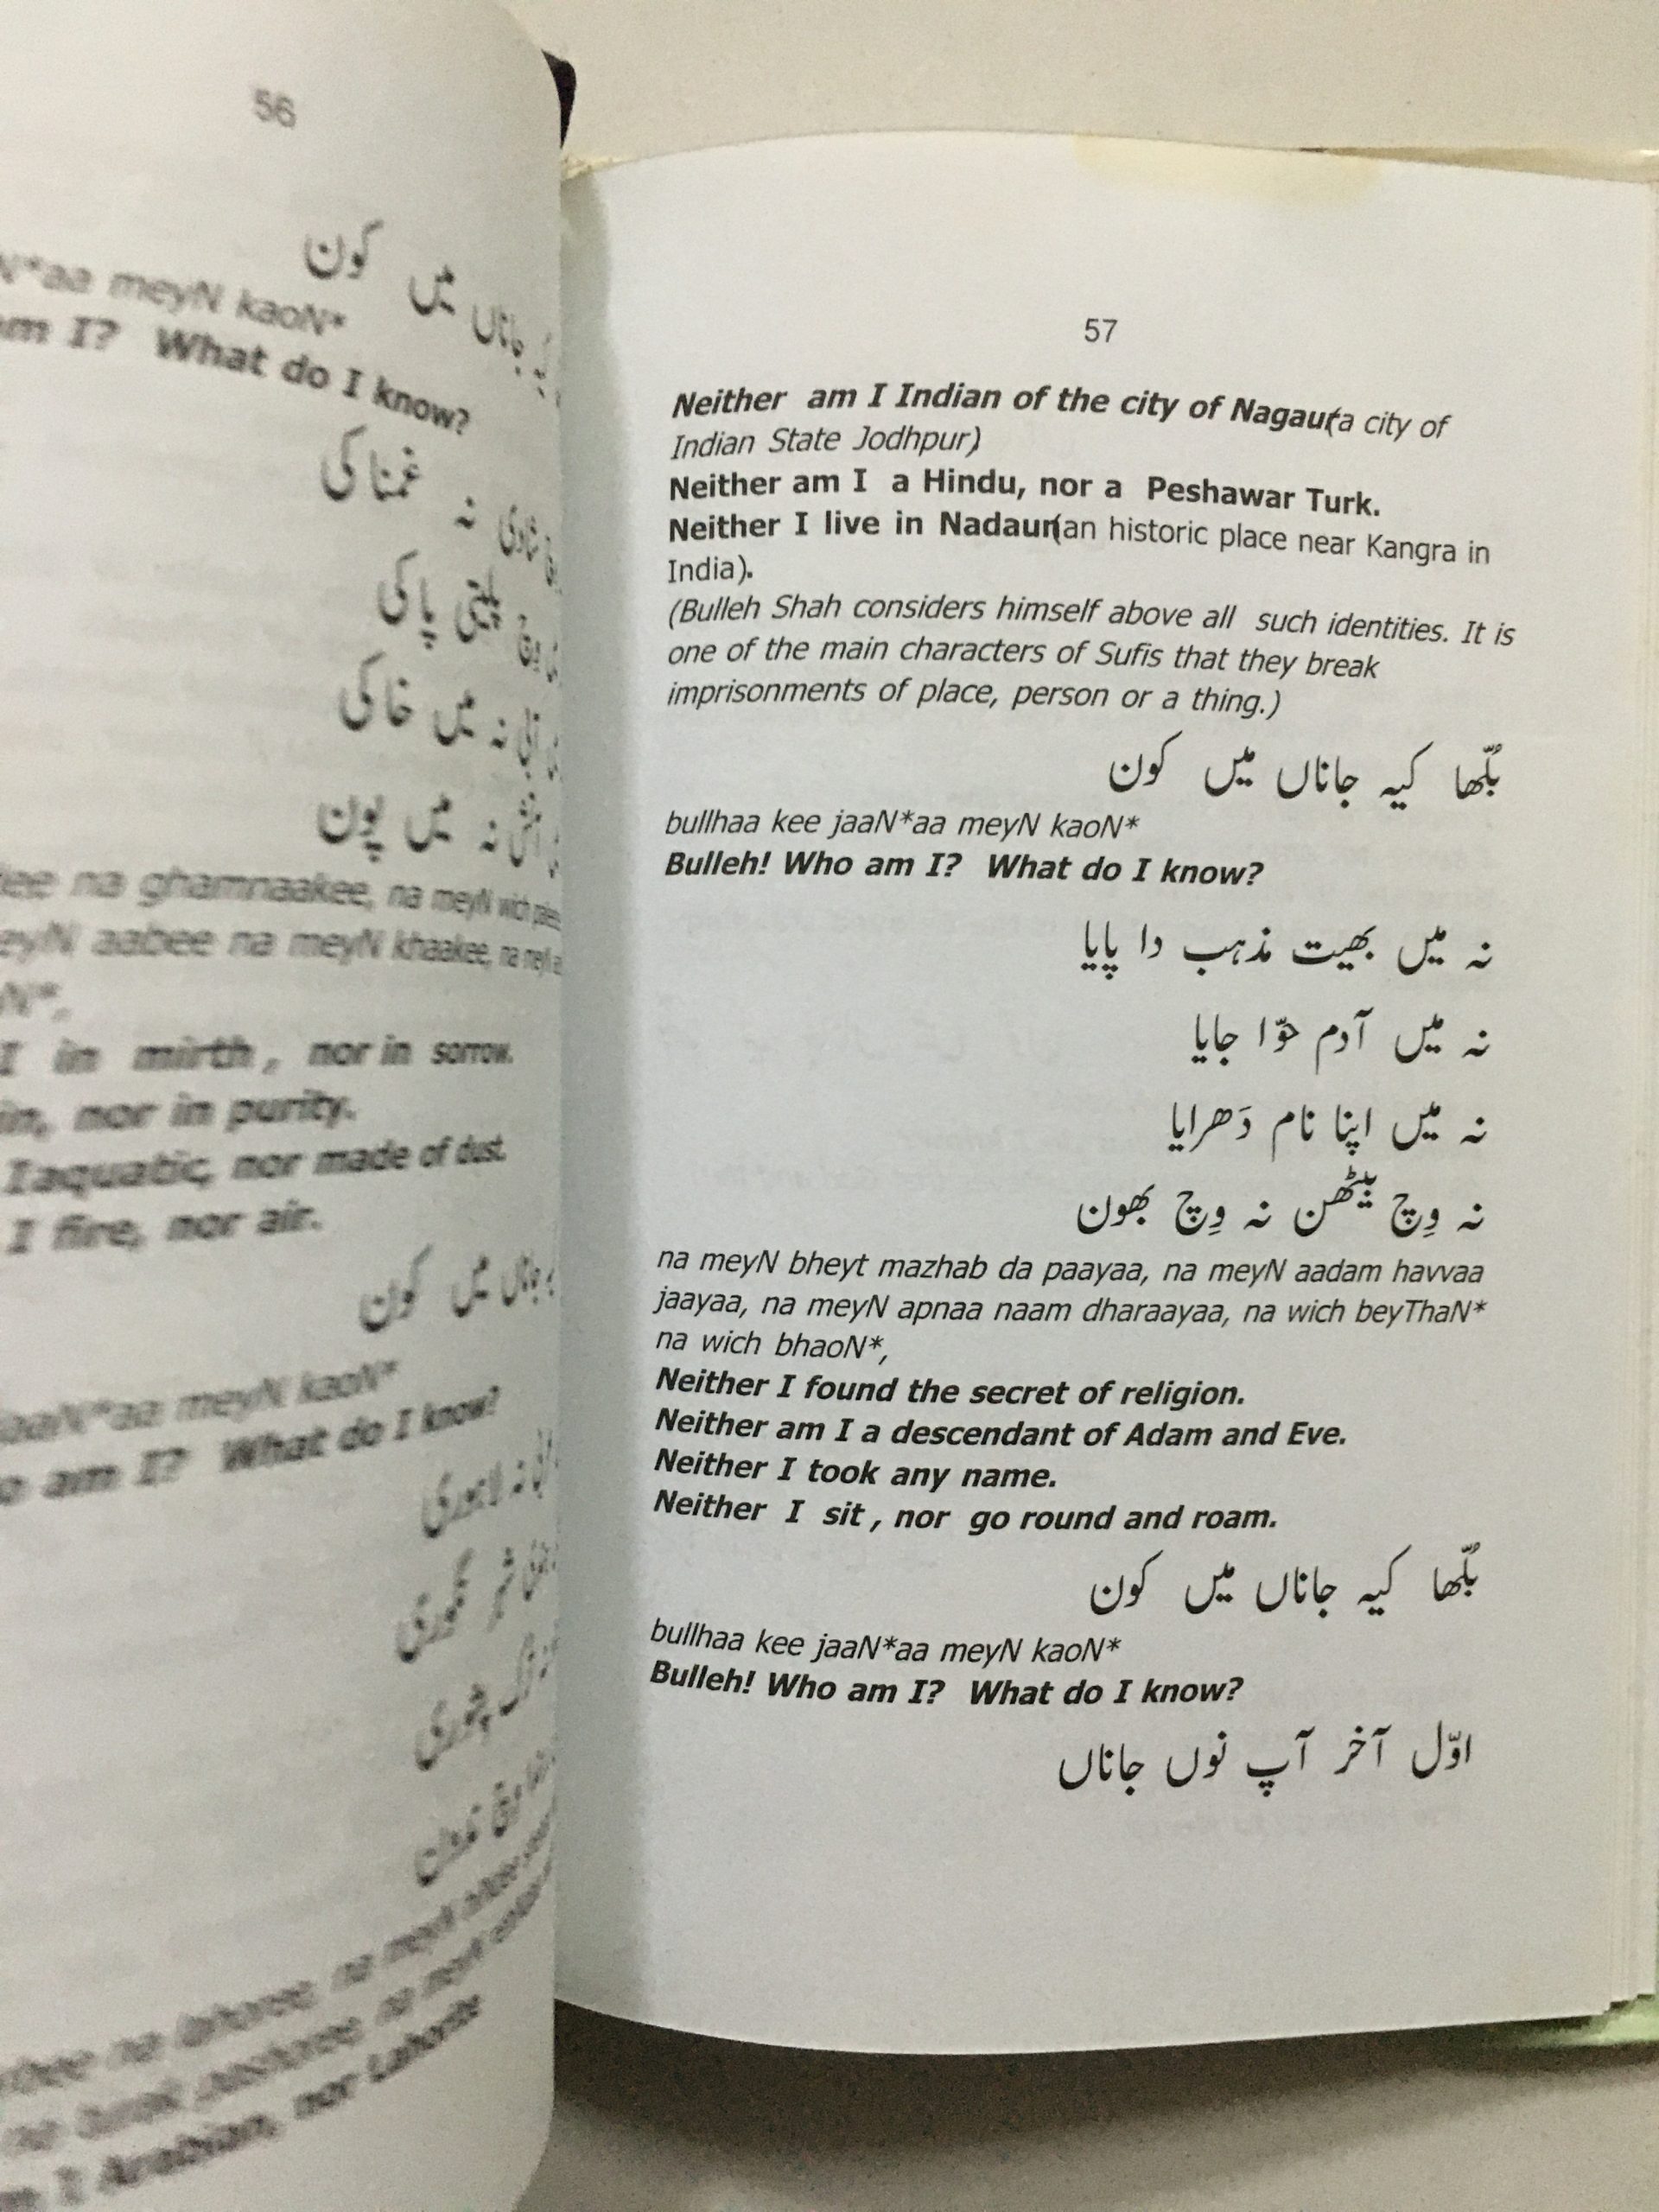 56
میں کون
N*aa meyN kaoN*
am I? What do I know?
نہ غمناکی
پلیتی پاکی
نہ میں خاکی
نہ میں پون
na ghamnaakee, na meyN wich
meyN aabee na meyN khaakee, na
N*,
I in mirth, nor in sorrow.
in, nor in purity.
I aquatic, nor made of dust.
I fire, nor air.
میں کون
jaaN*aa meyN kaoN*
am I? What do I know?
نہ لاہوری
شہر نگوری
na lahoree, na meyN
I Arabian, nor Lahorite
57
Neither am I Indian of the city of Nagaur(a city of
Indian State Jodhpur)
Neither am I a Hindu, nor a Peshawar Turk.
Neither I live in Nadaun(an historic place near Kangra in
India).
(Bulleh Shah considers himself above all such identities. It is
one of the main characters of Sufis that they break
imprisonments of place, person or a thing.)
بُلّھا کیہ جاناں میں کون
bullhaa kee jaaN*aa meyN kaoN*
Bulleh! Who am I? What do I know?
نہ میں بھیت مذہب دا پایا
نہ میں آدم حوّا جایا
نہ میں اپنا نام دَھرایا
نہ وِچ بیٹھن نہ وِچ بھون
na meyN bheyt mazhab da paayaa, na meyN aadam havvaa
jaayaa, na meyN apnaa naam dharaayaa, na wich beyThaN*
na wich bhaoN*,
Neither I found the secret of religion.
Neither am I a descendant of Adam and Eve.
Neither I took any name.
Neither I sit , nor go round and roam.
بُلّھا کیہ جاناں میں کون
bullhaa kee jaaN*aa meyN kaoN*
Bulleh! Who am I? What do I know?
اوّل آخر آپ نوں جاناں